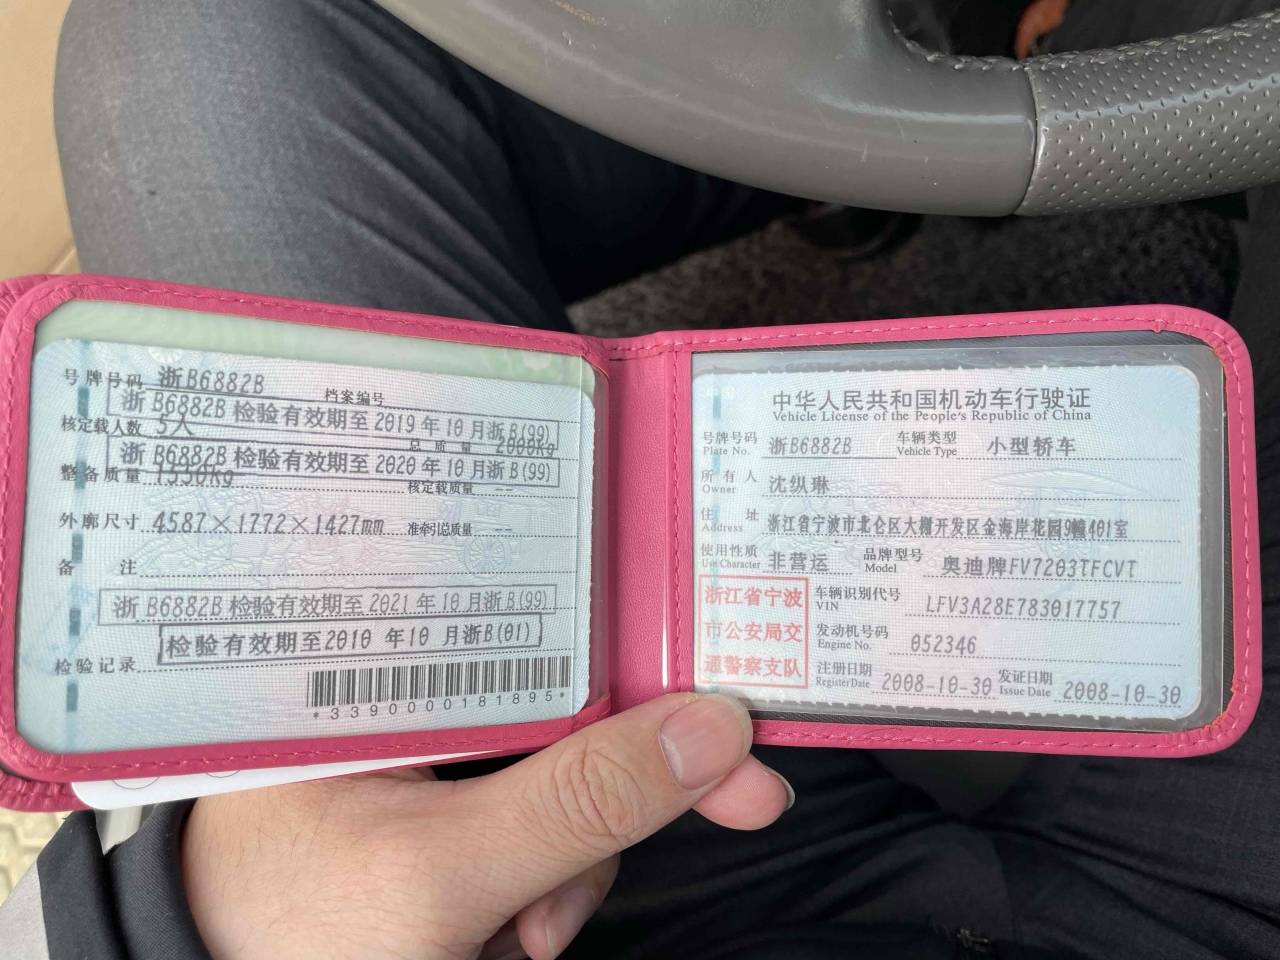 号牌号码 浙B6882B
档案编号
浙B6882B检验有效期至2019年10月浙B(99)
核定载人数 5人
总质量 2000Kg
浙B6882B检验有效期至2020年10月浙B(99)
整备质量
核定载质量 --
外廓尺寸 4587×1772×1427mm 准牵引总质量 --
备注
浙B6882B检验有效期至2021年10月浙B(99)
检验有效期至2010年10月浙B(01)
检验记录
*3390000181895*
中华人民共和国机动车行驶证
Vehicle License of the People's Republic of China
号牌号码 浙B6882B 车辆类型 小型轿车
Plate No. Vehicle Type
所有人 沈纵琳
Owner
住址 浙江省宁波市北仑区大榭开发区金海岸花园9幢401室
Address
使用性质 非营运 品牌型号 奥迪牌FV7203TFCVT
Use Character Model
浙江省宁波
市公安局交
通警察支队
车辆识别代号 LFV3A28E783017757
VIN
发动机号码 052346
Engine No.
注册日期 2008-10-30 发证日期 2008-10-30
Register Date Issue Date